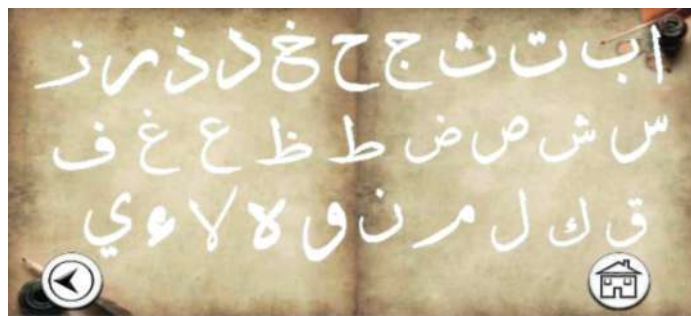 ا ب ت ث ج ح خ د ذ ر ز
س ش ص ض ط ظ ع غ ف
ق ك ل م ن و ه لا ء ي